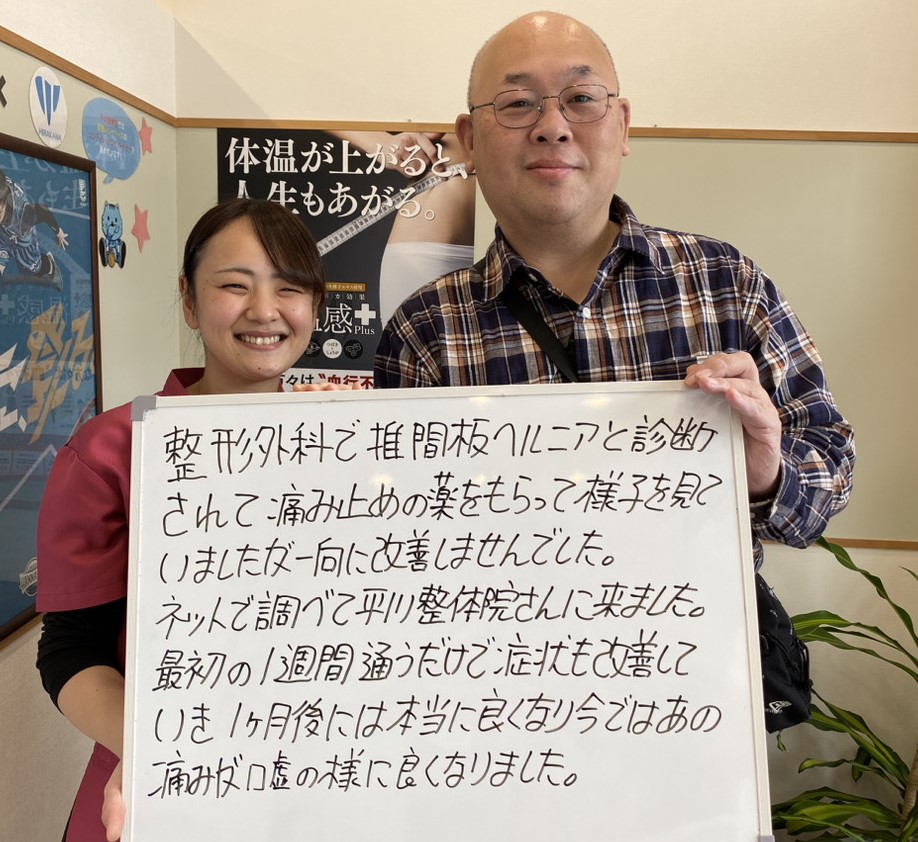 HIRAKAWA
体温が上がると、
人生もあがる。
温感+
Plus
整形外科で推間板ヘルニアと診断
されて痛み止めの薬をもらって様子を見て
いましたが一向に改善しませんでした。
ネットで調べて平川整体院さんに来ました。
最初の1週間通うだけで症状も改善して
いき1ヶ月後には本当に良くなり今ではあの
痛みが口虚の様に良くなりました。